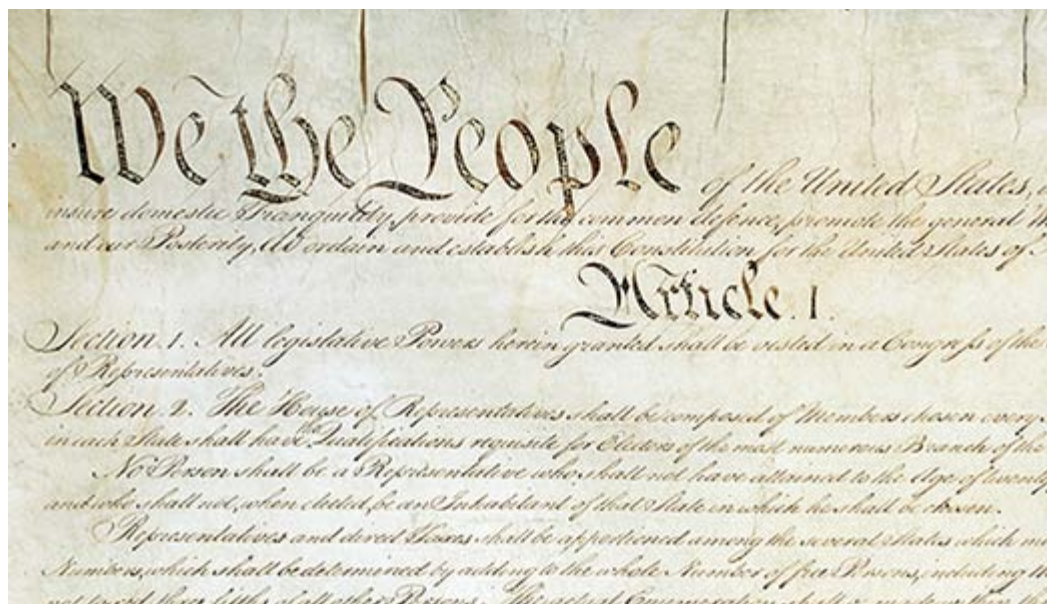 We the People of the United States,
insure domestic Tranquility, provide for the common defence, promote the general
and our Posterity, do ordain and establish this Constitution for the United States of
Article. I.
Section. 1. All legislative Powers herein granted shall be vested in a Congress of the
of Representatives.
Section. 2. The House of Representatives shall be composed of Members chosen every
in each State shall have the Qualifications requisite for Electors of the most numerous Branch of the
No Person shall be a Representative who shall not have attained to the Age of twenty
and who shall not, when elected, be an Inhabitant of that State in which he shall be chosen.
Representatives and direct Taxes shall be apportioned among the several States which
Numbers, which shall be determined by adding to the whole Number of free Persons, including
three fifths of all other Persons. The actual Enumeration shall be made